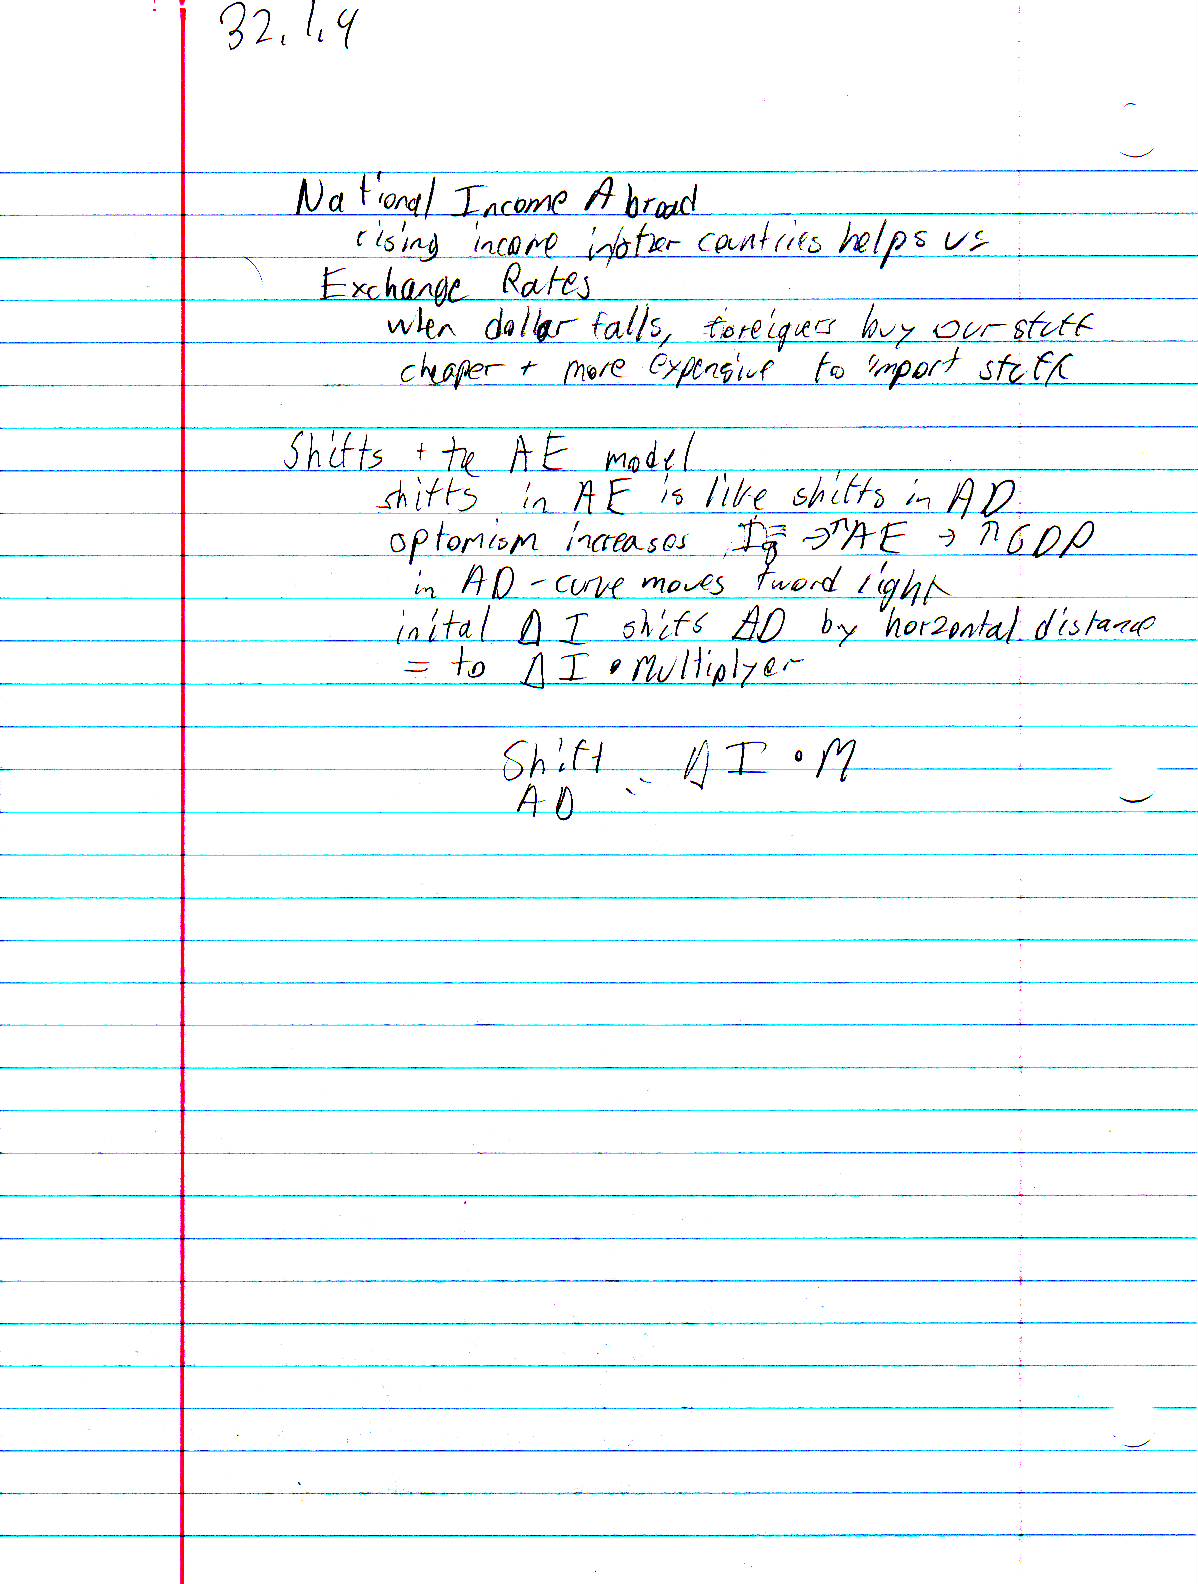 32.1.4
National Income Abroad
rising income in other countries helps us
Exchange Rates
when dollar falls, foreigners buy our stuff
cheaper + more expensive to import stuff
Shifts + the AE model
shifts in AE is like shifts in AD
optomism increases Ig → ↑AE → ↑GDP
in AD - curve moves tword right
inital Δ I shifts AD by horzontal distance
= to Δ I • multiplyer
Shift = Δ I • M
AD